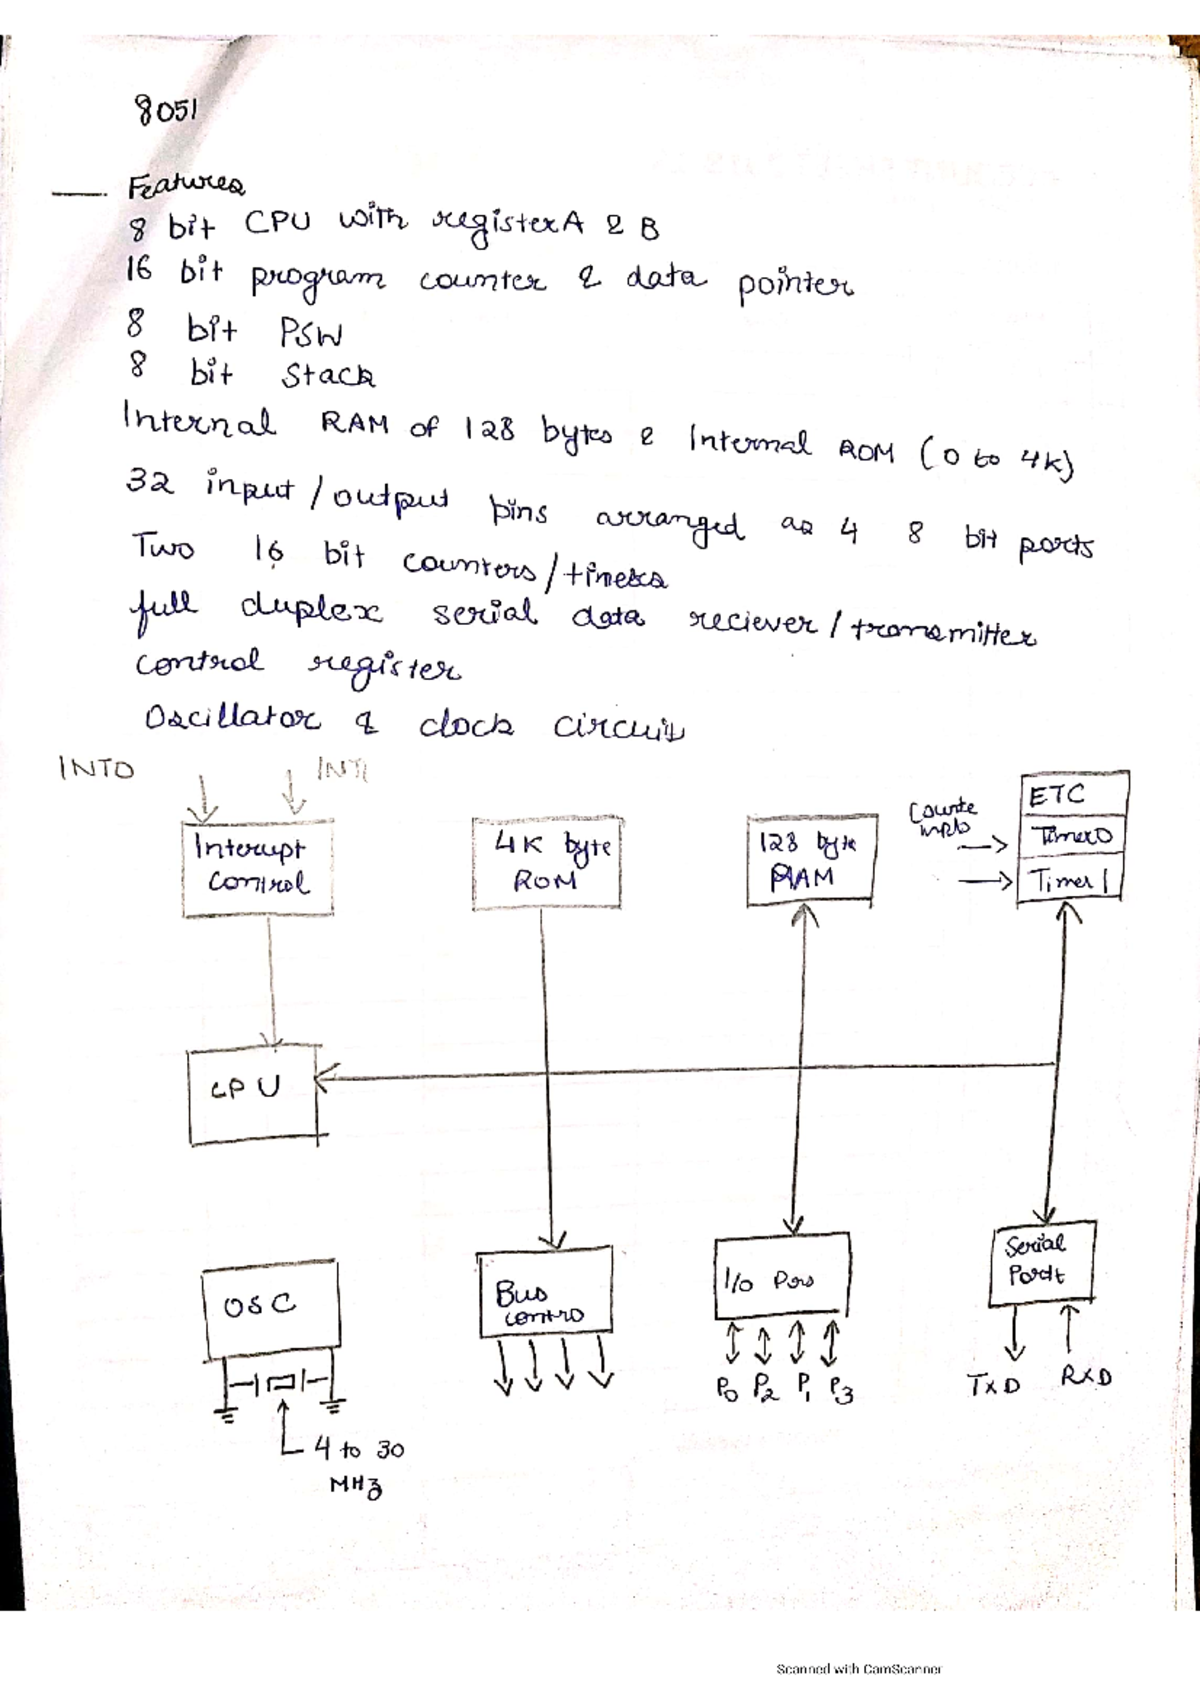 8051
Features
8 bit CPU with register A & B
16 bit program counter & data pointer
8 bit PSW
8 bit Stack
Internal RAM of 128 bytes & Internal ROM (0 to 4K)
32 input / output pins arranged as 4 8 bit ports
Two 16 bit counters / timers
full duplex serial data reciever / transmitter
control register
Oscillator & clock circuit
INTO INT1
Interupt
Control
4K byte
ROM
128 byte
RAM
Counte
inpts
ETC
Timer0
Timer 1
CPU
OSC
4 to 30
MHz
Bus
contro
I/o Pors
P0 P2 P1 P3
Serial
Pordt
TXD RXD
Scanned with CamScanner